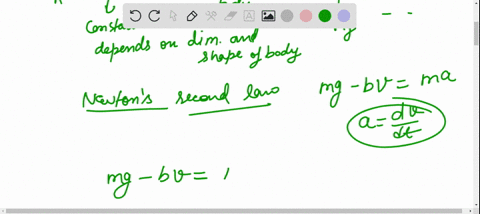 Consta
depends on dim. and
shape of body
Newton's second law
mg - bv = ma
a = dv/dt
mg - bv =